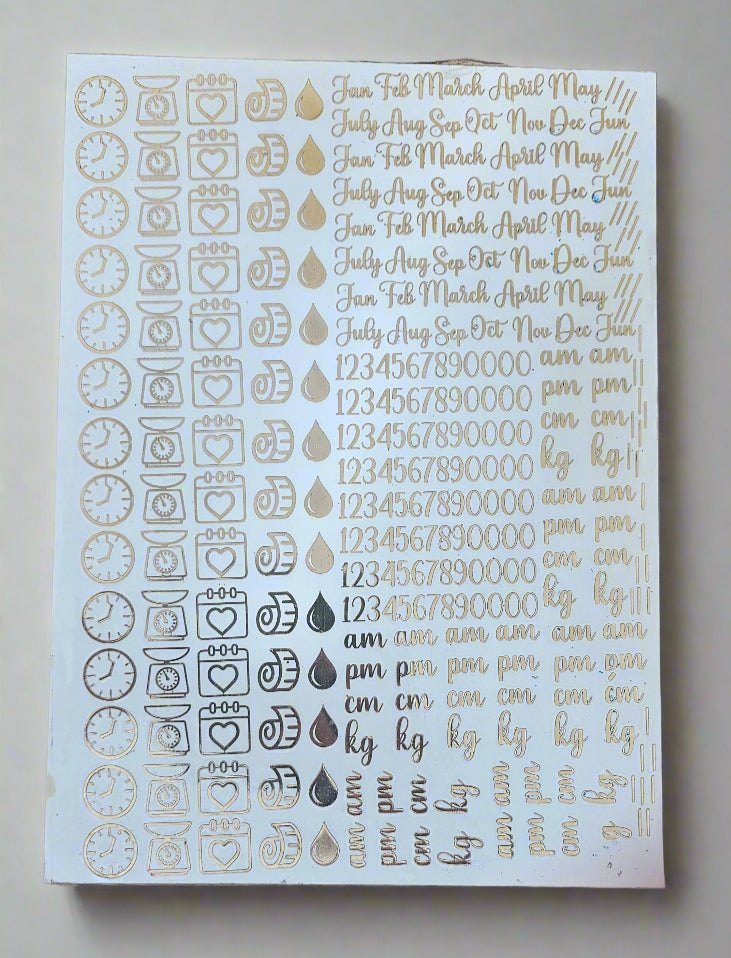 Jan Feb March April May ////
July Aug Sep Oct Nov Dec Jun
Jan Feb March April May ////
July Aug Sep Oct Nov Dec Jun
Jan Feb March April May ////
July Aug Sep Oct Nov Dec Jun
Jan Feb March April May ////
July Aug Sep Oct Nov Dec Jun
1234567890000 am am
1234567890000 pm pm
1234567890000 cm cm
1234567890000 kg kg
1234567890000 am am
1234567890000 pm pm
1234567890000 cm cm
1234567890000 kg kg
am am am am am am
pm pm pm pm pm pm
cm cm cm cm cm cm
kg kg kg kg kg kg
am pm cm kg am pm cm kg
am pm cm kg am pm cm g